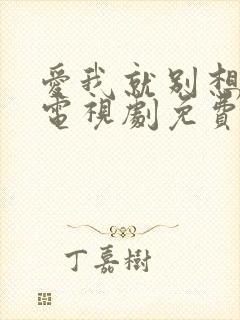 愛我就別想
電視劇免費
丁嘉樹